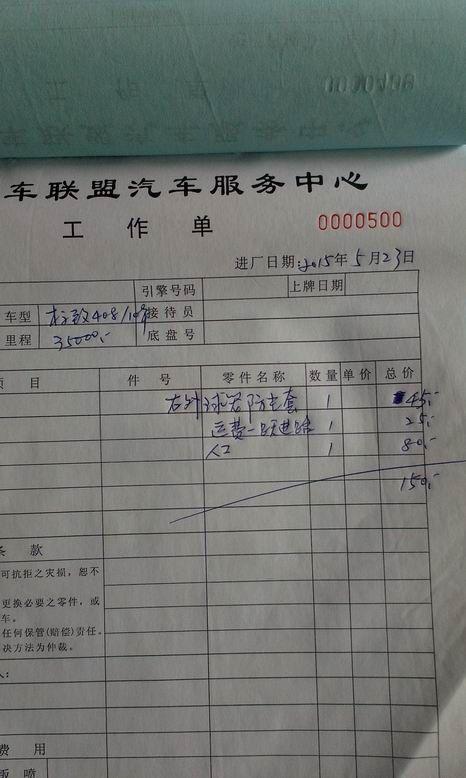 车联盟汽车服务中心
工作单 0000500
进厂日期:2015年5月23日
引擎号码 上牌日期
车型 标致408/10年 接待员
里程 35000.- 底盘号
项目 件号 零件名称 数量 单价 总价
右外球笼防尘套 1 45.-
运费 1 25.-
人工 1 80.-
150.-
条款
可抗拒之灾损,恕不
更换必要之零件,或
车。
任何保管(赔偿)责任。
决方法为仲裁。
人:
费用
钣喷